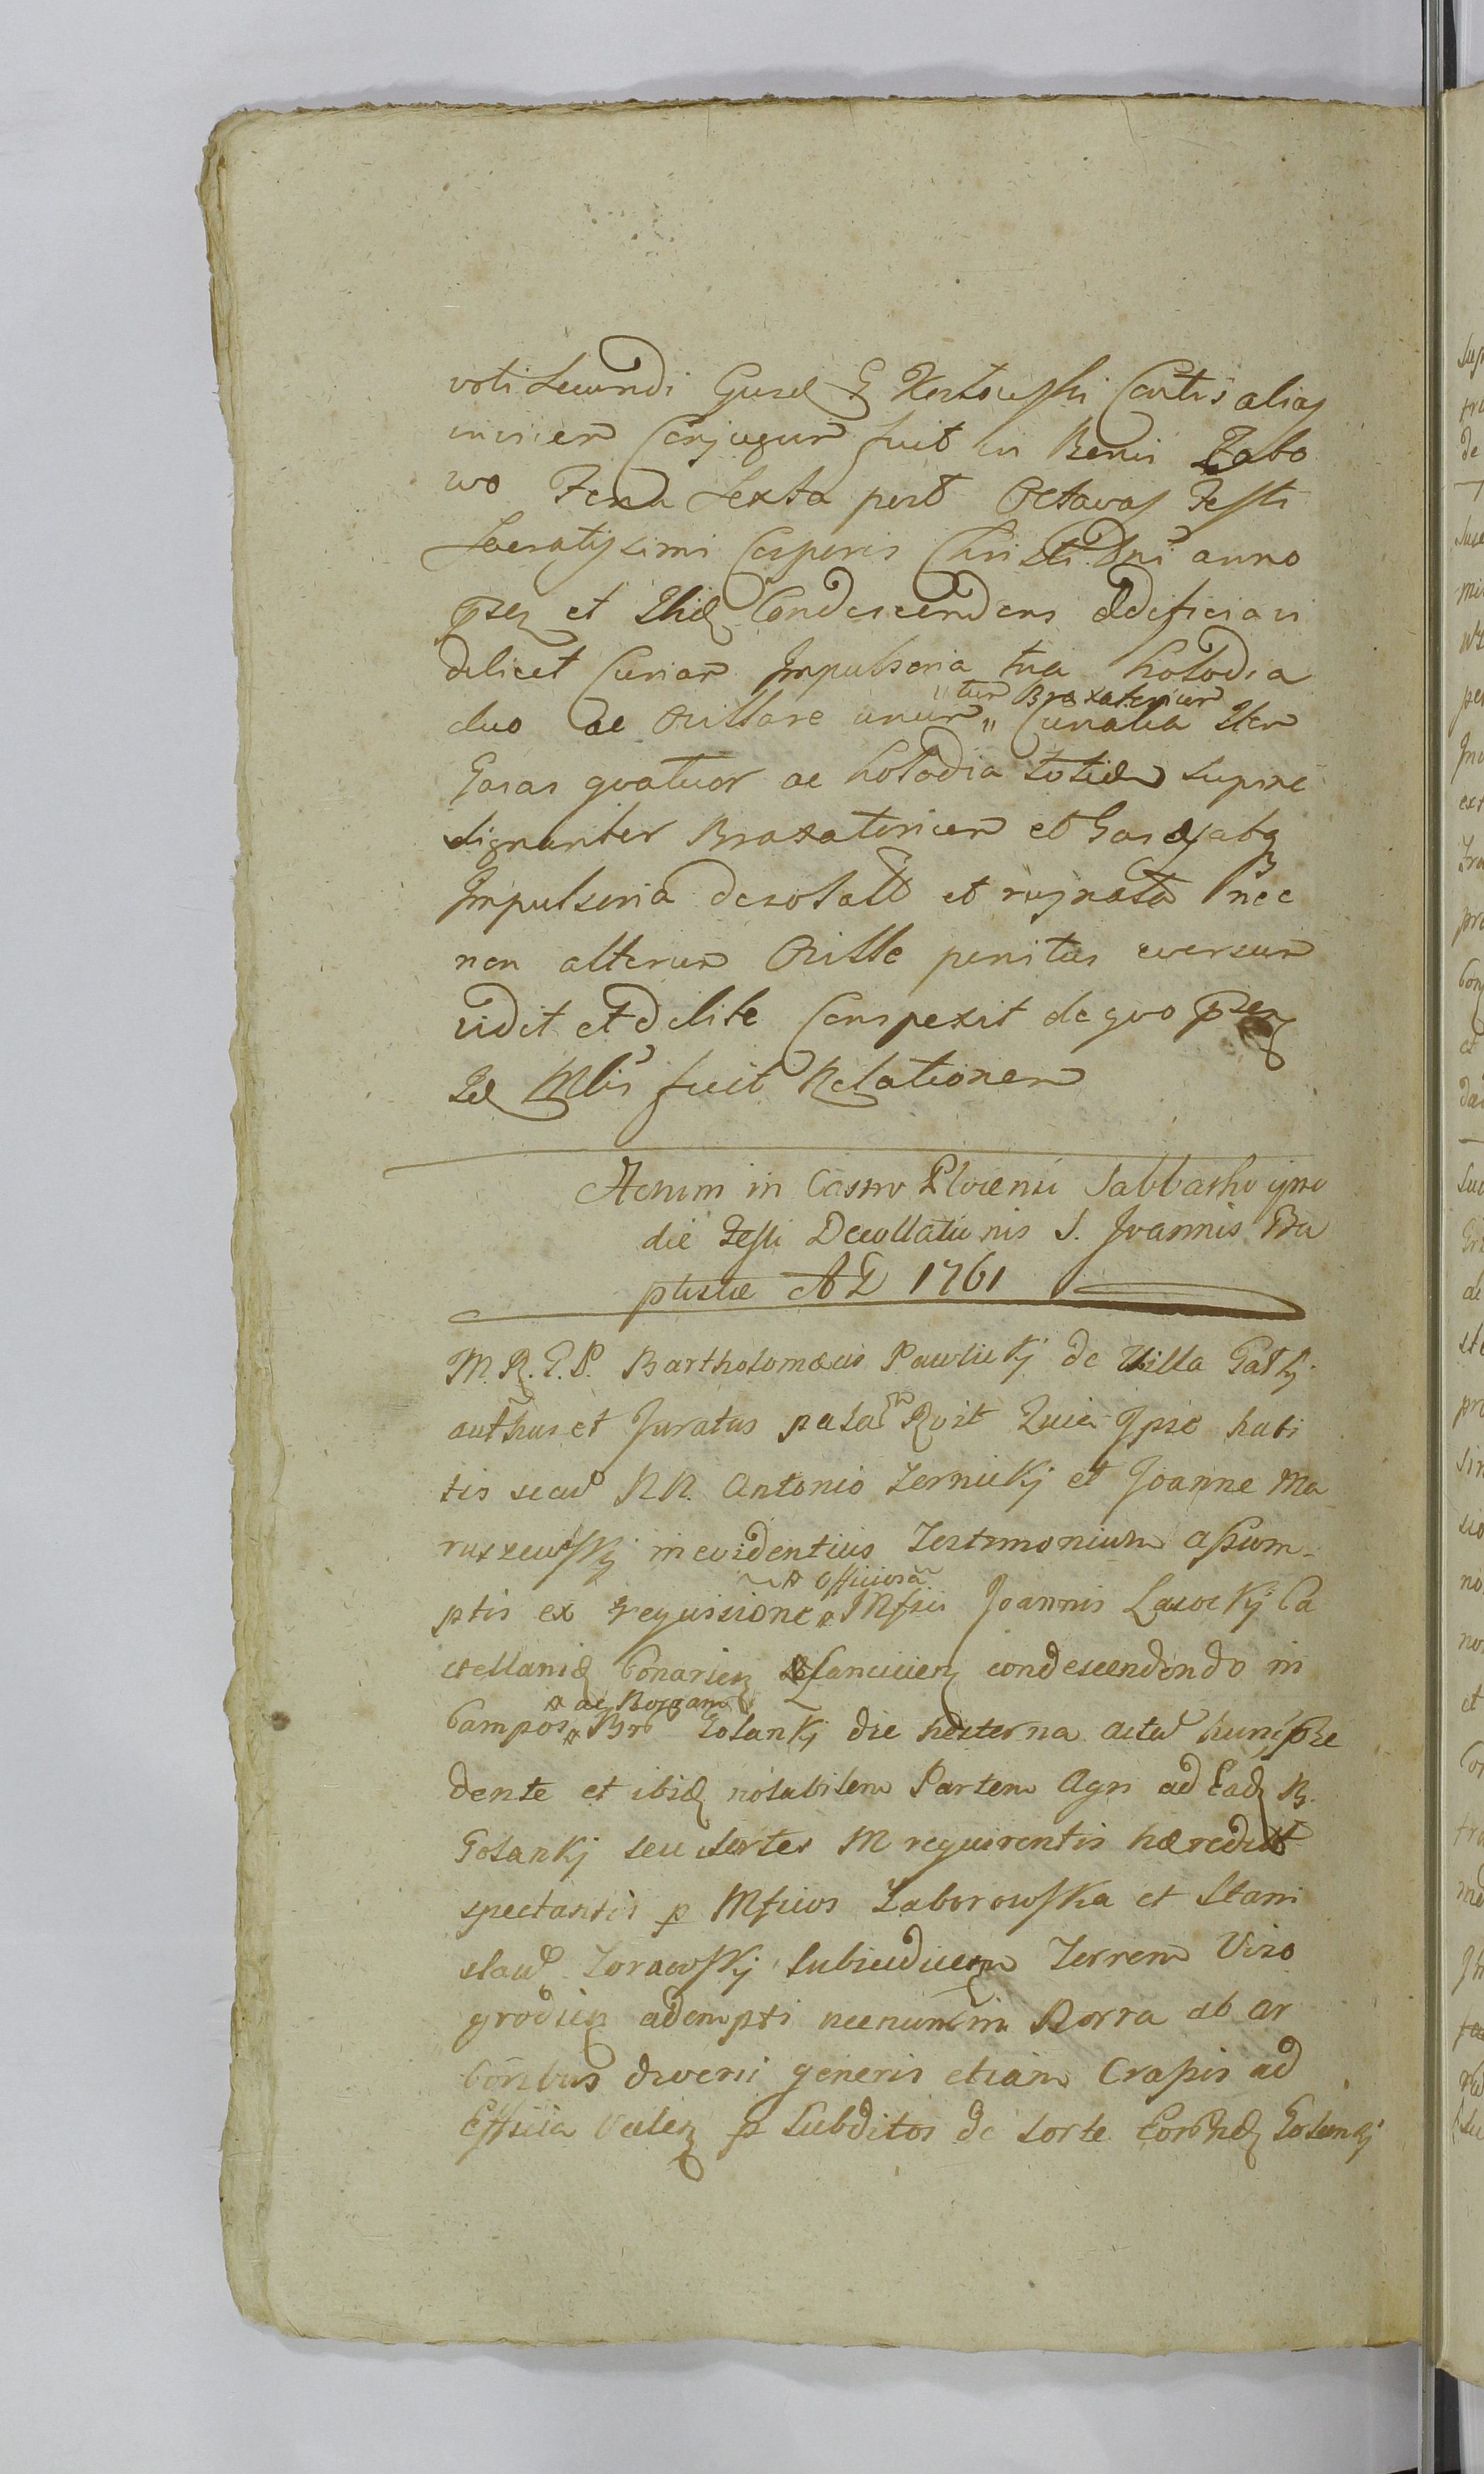 voti secundi Gnsd G Kostowski Contis alias
invicem Conjugum fuit in Bonis Zabo
wo Feria Sexta post Octavas Festi
Sacratissimi Corporis Christi Dni anno
psen et Ibid Condescendens ædificia vi
delicet Curiam Impulsoria tria holodia
duo ac Ovillare unum „ Curialia Item
„ tum Braxatorium
Casas quatuor ac holodia totidem supme
dignanter Braxatorium et Casæ absq
Impulsoria desolatt et rujnata nec
non alterum Oville penitus eversum
vidit et delite Conspexit de quo psen
Id Mlis fecit Relationem
Actum in Castro Plocensi Sabbatho ipso
die Festi Decollationis S. Joannis Ba
ptistæ AD 1761
M.R.G.P. Bartholomæus Pawlickj de Villa Galkj
authus et Juratus palam Rvit Quia Ipse habi
tis secum NN. Antonio Zernickj et Joanne Ma
ruszewskj in evidentius Testimonium assum-
ptis ex requisitione Mfici Joannis Lasockj Ca
officiosa
stellanid Conarien Lancicien condescendendo in
Campos Br Golankj die hesterna actum hunc præ
ac Borram
dente et ibid notabilem Partem Agri ad Ead B.
Golankj seu sortes M requirentis hæreditt
spectantis p Mficos Zaborowska et Stani
slaum Zorawskj Subjudicem Terren Viso
grodien adempti necnum in Borra ab ar
boribus diversi generis etiam Crassis ad
Ædificia Valen p Subditos de sorte Eorund Golankj